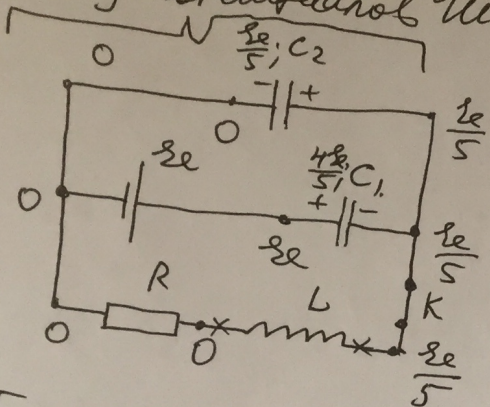 0
ℰ/5; C₂
- +
0
ℰ/5
ℰ
4ℰ/5; C₁
+ -
0
ℰ
ℰ/5
R
L
K
0
0
ℰ/5